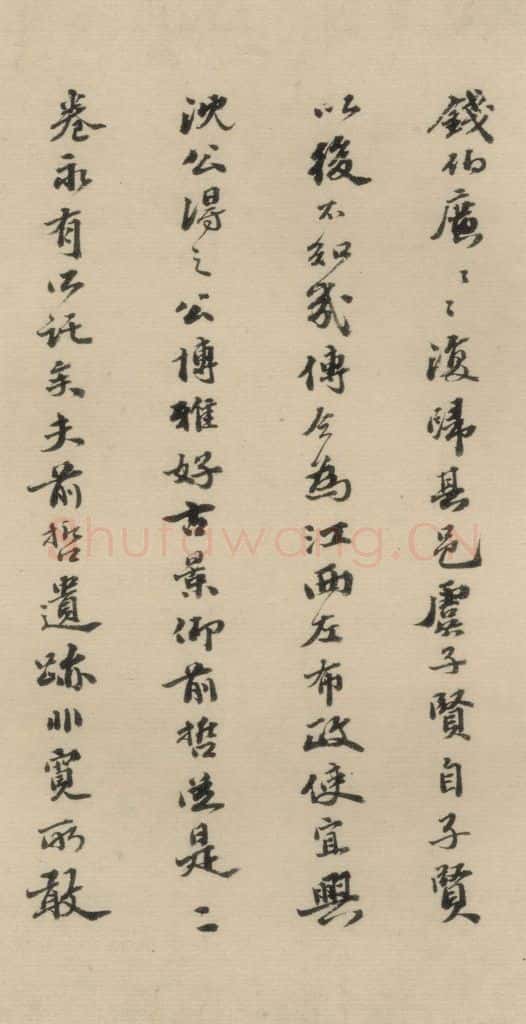 錢伯廉〻〻復歸其邑虞子賢自子賢
以後不知幾傳今為江西左布政使宜興
沈公得之公博雅好古景仰前哲從是二
卷永有所託矣夫前哲遺跡非寬所敢
Shufawang.CN